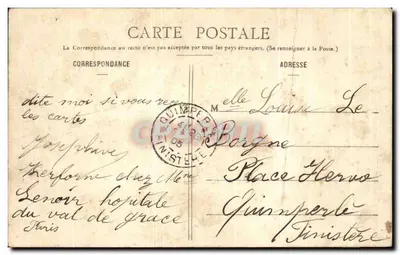 CARTE POSTALE
La Correspondance au recto n'est pas acceptée par tous les pays étrangers. (Se renseigner à la Poste.)
CORRESPONDANCE
ADRESSE
dite moi si vous
les cartes
Josephine
chez Mme
Lenoir hopitale
du val de grace
Paris
Melle Louise Le
Borgne
Place Hervo
Quimperlé
Finistère
QUIMPERLE
FINISTERE
05